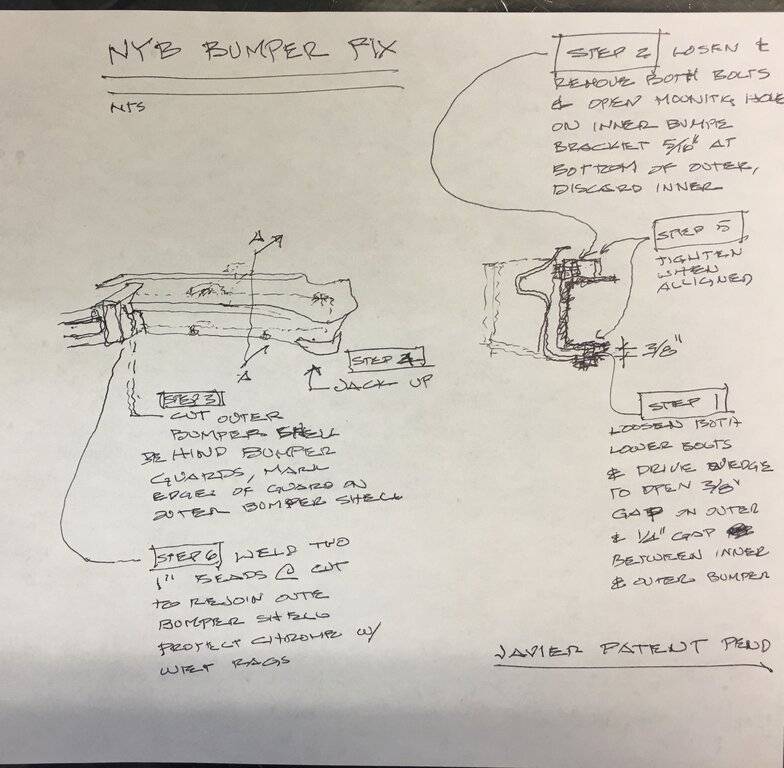 NYB BUMPER FIX
NTS
STEP 2 LOSEN &
REMOVE BOTH BOLTS
& OPEN MOUNITG HOLE
ON INNER BUMPE
BRACKET 5/16" AT
BOTTOM OF OUTER,
DISCARD INNER
STEP 5
TIGHTEN
WHEN
ALLIGNED
A
A
3/8"
STEP 4
JACK UP
STEP 3
CUT OUTER
BUMPER SHELL
BEHIND BUMPER
GUARDS, MARK
EDGES OF GUARD ON
OUTER BUMPER SHELL
STEP 1
LOOSEN BOTH
LOWER BOLTS
& DRIVE WEDGE
TO OPEN 3/8"
GAP ON OUTER
& 1/4" GAP
BETWEEN INNER
& OUTER BUMPER
STEP 6 WELD TWO
1" BEADS @ CUT
TO REJOIN OUTE
BUMPER SHELL
PROTECT CHROME W/
WET RAGS
JAVIER PATENT PEND